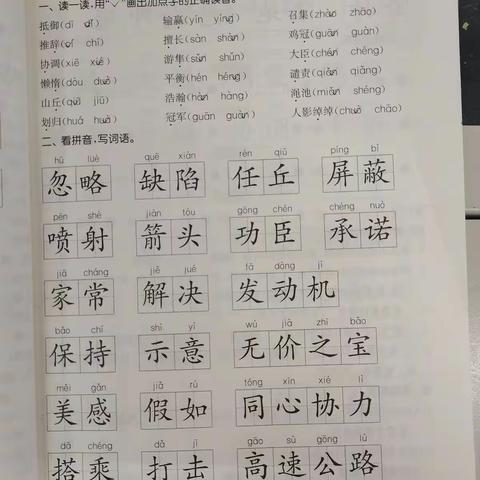 一、读一读,用“✓”画出加点字的正确读音。
抵御(dī dǐ) 输赢(yín yíng) 召集(zhào zhāo)
推辞(cí chí) 擅长(sàn shàn) 鸡冠(guān guàn)
协调(xiē xié) 游隼(sǔn shǔn) 大臣(chén chéng)
懒惰(dòu duò) 平衡(hén héng) 谴责(qiǎn qiǎng)
山丘(qiū jiū) 浩瀚(hàn hàng) 渑池(miǎn shéng)
划归(huá huà) 冠军(guān guàn) 人影绰绰(chuò chāo)
二、看拼音,写词语。
hū lüè quē xiàn rèn qiū píng bì
忽略 缺陷 任丘 屏蔽
pēn shè jiàn tóu gōng chén chéng nuò
喷射 箭头 功臣 承诺
jiā cháng jiě jué fā dòng jī
家常 解决 发动机
bǎo chí shì yì wú jià zhī bǎo
保持 示意 无价之宝
měi gǎn jiǎ rú tóng xīn xié lì
美感 假如 同心协力
dā chéng dǎ jī gāo sù gōng lù
搭乘 打击 高速公路